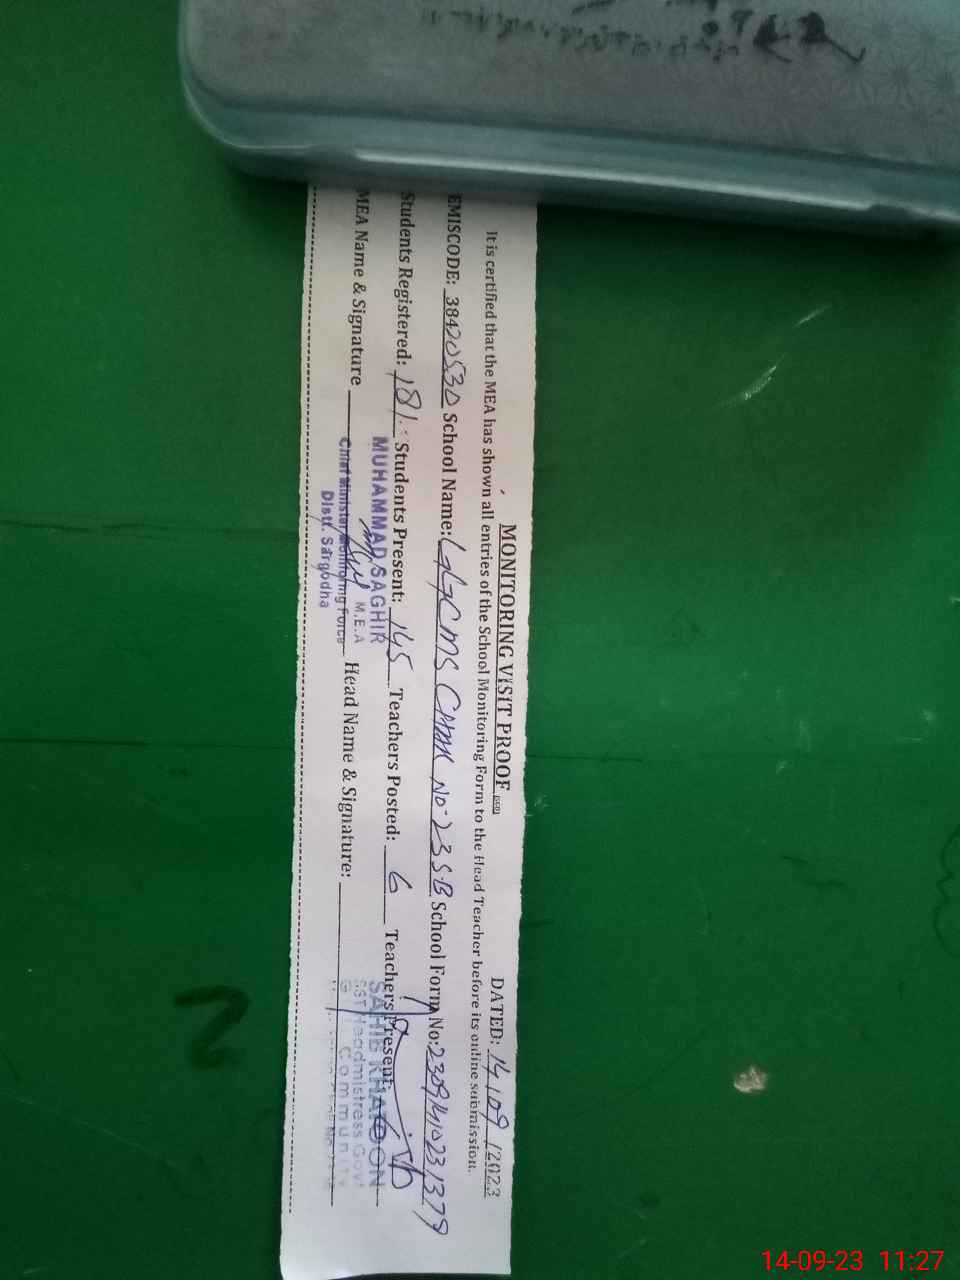 MONITORING VISIT PROOF
DATED: 14/09/2023
It is certified that the MEA has shown all entries of the School Monitoring Form to the Head Teacher before its online submission.
EMISCODE: 38420530 School Name: GGCMS CHAK No. 23 S.B School Form No:
Students Registered: 181 Students Present: 145 Teachers Posted: 6 Teachers Present:
MEA Name & Signature Head Name & Signature:
MUHAMMAD SAGHIR
M.E.A
Chief Minister Monitoring Force
Distt. Sargodha
SAHIB KHATOON
SST Headmistress Govt
Community
2
14-09-23 11:27